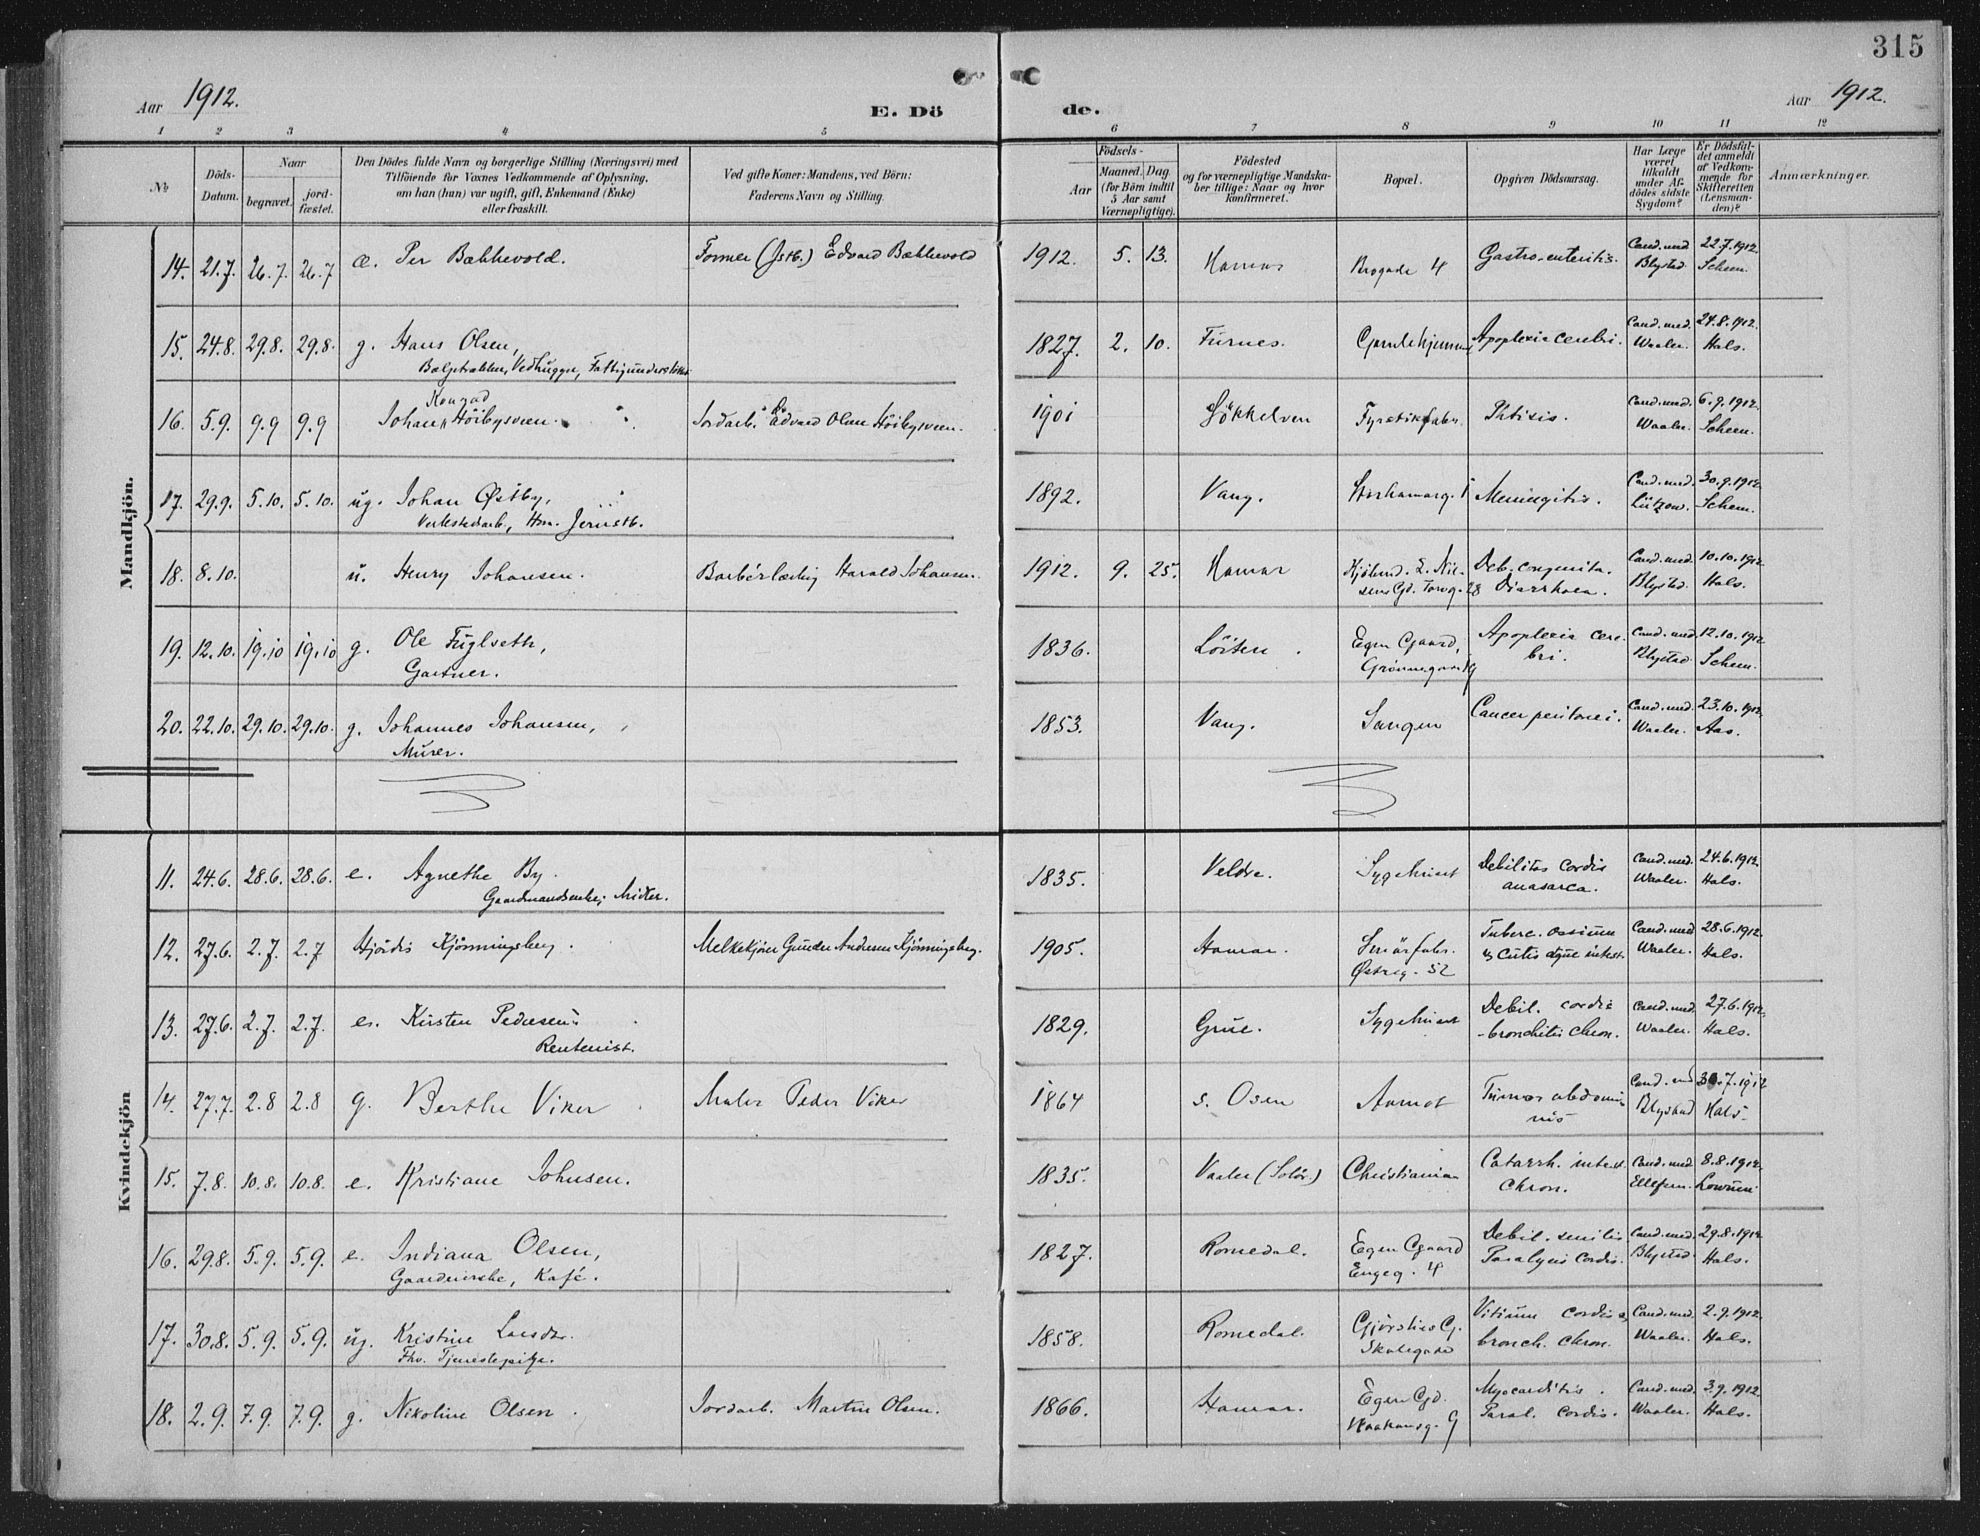 315
Aar 1912.
E. Dö
de.
Aar 1912.
1 2 3 4 5 6 7 8 9 10 11 12
No
Döds-Datum.
Naar
begravet.
jord-fæstet.
Den Dödes fulde Navn og borgerlige Stilling (Næringsvei) med
Tilföiende for Voxnes Vedkommende af Oplysning,
om han (hun) var ugift, gift, Enkemand (Enke)
eller fraskilt.
Ved gifte Koner: Mandens, ved Börn:
Faderens Navn og Stilling.
Födsels-
Aar
Maaned. Dag.
(for Börn indtil
5 Aar samt
Værnepligtige).
Födested
og for værnepligtige Mandska-
ber tillige: Naar og hvor
konfirmeret.
Bopæl.
Opgiven Dödsaarsag.
Har Læge
været
tilkaldt
under Af-
dödes sidste
Sygdom?
Er Dödsfal-
det anmeldt
af Vedkom-
mende for
Skifteretten
(Lensman-
den)?
Anmærkninger.
Mandkjön.
14. 21.7. 26.7. 26.7 Per Bækkevold. Former (Jstb.) Edvard Bækkevold 1912. 5. 13. Hamar Brogade 4 Gastro-enteritis. Cand. med 22.7.1912.
Blystad. Scheen.
15. 24.8. 29.8. 29.8. g. Hans Olsen, 1827. 2. 10. Furnes. Gamlehjemmet Apoplexia cerebri. Cand. med. 24.8.1912.
Vedhugger, Waaler. Hals.
Konrad
16. 5.9. 9.9 9.9 Johan Höibysveen. Jordarb. Edvard Olsen Höibysveen. 1901 Sökkelven Fyrstikfabr. Phtisis. Cand. med. 6.9.1912.
Waaler. Scheen.
17. 29.9. 5.10. 5.10. ug. Johan Østby, 1892. Vang. Storhamarg. Meningitis. Cand. med. 30.9.1912.
Verkstedarb., Hmr. Jernstb. Lützow. Scheen.
18. 8.10. u. Henry Johansen. Barbérlærling Harald Johansen. 1912. 9. 25. Hamar Deb. congenita. Cand. med 10.10.1912
sens Gd. Torvg. 28 Diarrhoea. Blystad. Hals.
19. 12.10. 19.10 19.10 g. Ole Fuglseth, 1836. Löiten. Egen Gaard, Apoplexia cere- Cand. med. 12.10.1912
Gartner. Grönnegaden 19 bri. Blystad. Scheen.
20. 22.10. 29.10. 29.10. g. Johannes Johansen, 1853. Vang. Sangen Cancer peritonei. Cand. med. 23.10.1912.
Murer. Waaler. Aas.
Kvindekjön
11. 24.6. 28.6. 28.6. e. Agnethe By. 1835. Veldre. Sygehuset Debilitas cordis Cand. med. 24.6.1912.
Gaardmandsenke, anasarca. Waaler. Hals.
12. 27.6. 2.7. 2.7 Hjördis Kjönningsberg. Melkekjörer Gunder Andersen Kjönningsberg. 1905. Hamar. Smörfabr. Tuberc. ossium Cand. med 28.6.1912.
Østreg. 52 & cutis atque intest. Waaler. Hals.
13. 27.6. 2.7. 2.7. e. Kirsten Pedersen. 1829. Grue. Sygehuset Debil. cordis Cand. med. 27.6.1912.
Rentenist. -bronchitis chron. Waaler. Hals.
14. 27.7. 2.8 2.8 g. Berthe Viker Maler Peder Viker 1864 s. Osen Aamot Tumor abdomi- Cand. med 30.7.1912
nis Blystad Hals.
15. 7.8. 10.8. 10.8. e. Kristiane Johnsen. 1835. Vaaler (Solör.) Christiania Catarrh. intest. Cand. med 8.8.1912.
chron.
16. 29.8. 5.9. 5.9. e. Indiana Olsen, 1827. Romedal. Egen Gaard Debil. senilis Cand. med. 29.8.1912
Gaardeierske, Kafé. Engeg. 4 Paralysis cordis. Blystad. Hals.
17. 30.8. 5.9. 5.9. ug. Kristine 1858. Romedal. Vitium cordis & Cand. med. 2.9.1912.
Fhv. Tjenestepige. Skolegade bronch. chron. Waaler. Hals.
18. 2.9. 7.9. 7.9. g. Nikoline Olsen. Jordarb. Martin Olsen. 1866. Hamar. Egen Gd. Myocarditis. Cand. med. 3.9.1912.
Haakonsg. 9 Paral. cordis. Waaler. Hals.